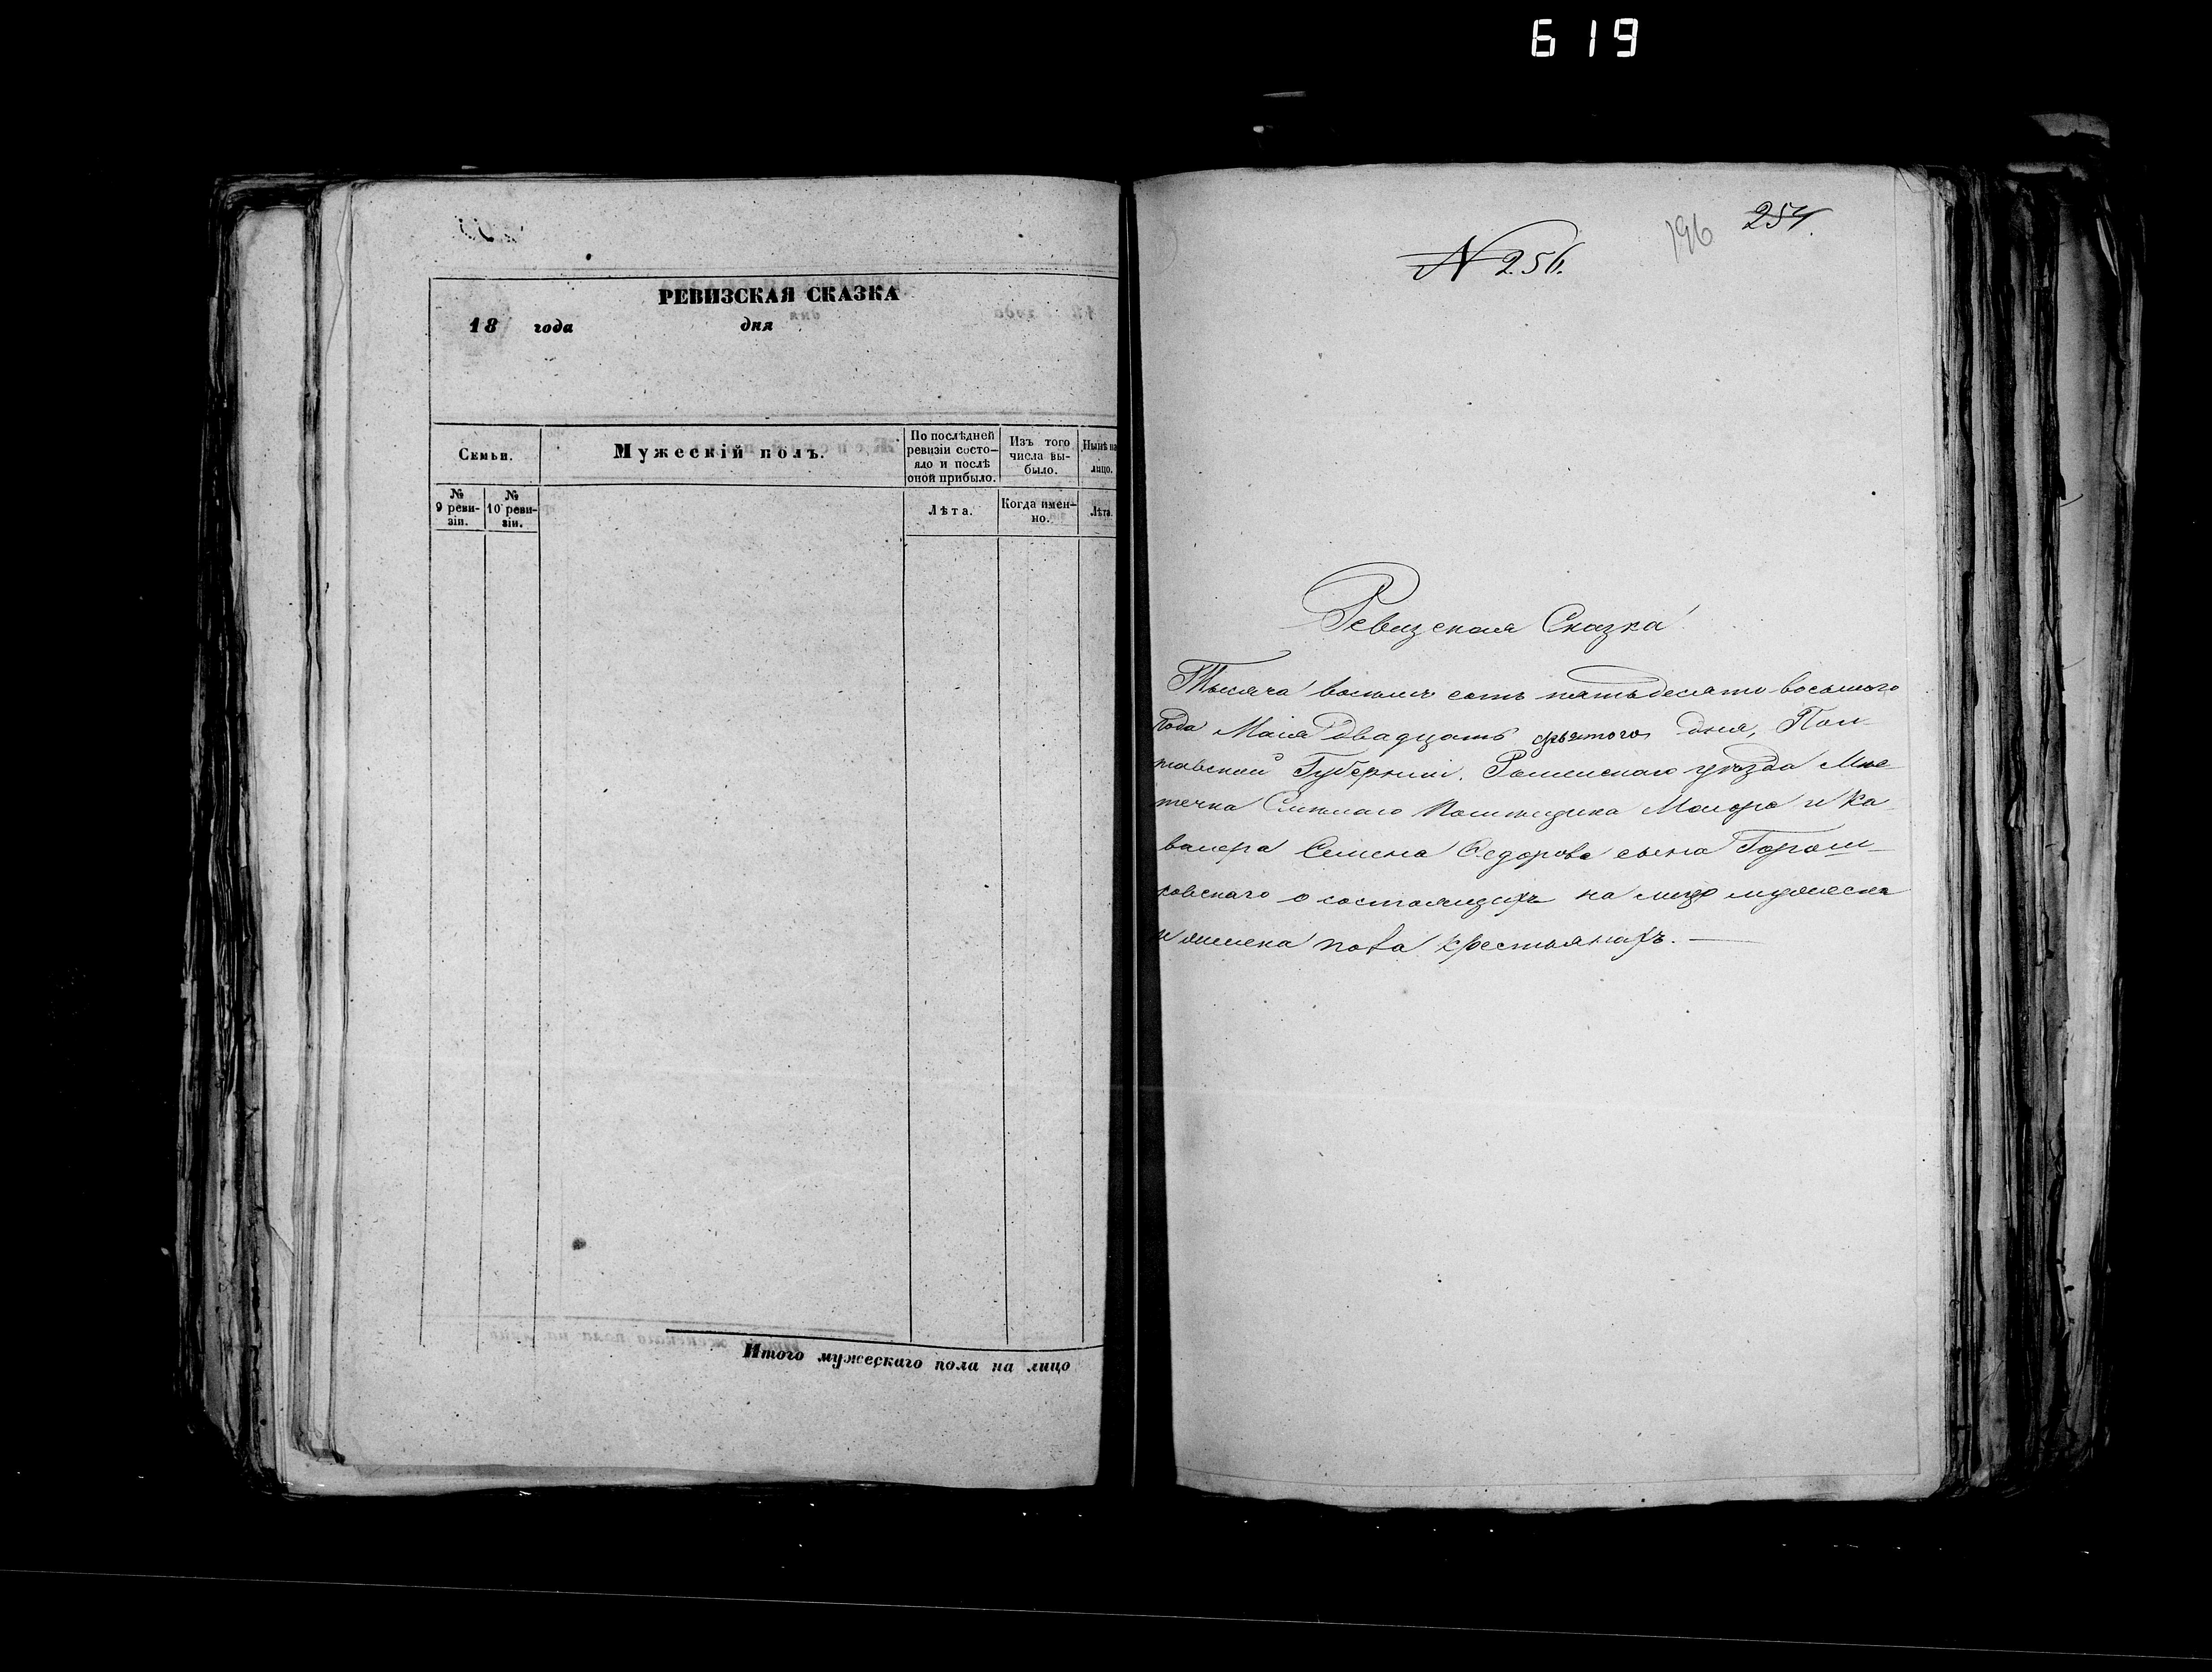 619
РЕВИЗСКАЯ СКАЗКА
18 года дня
Семьи.
Мужескій полъ.
По послѣдней ревизіи состо-
яло и послѣ оной прибыло.
Изъ того числа вы-
было.
Нынѣ на лицо.
№ 9 реви-
зіи.
№ 10 реви-
зіи.
Лѣта.
Когда имен-
но.
Лѣта.
Итого мужескаго пола на лицо
196 254.
№ 256.
Ревизская Сказка
Тысяча восемь сотъ пятьдесято восьмого
года Маія двадцать дня, Пол-
тавской Губерніи. Роменскаго уѣзда Мѣс-
течка Смѣлаго Помѣщика Маіора и Ка-
валера Семена Федорова сына Горош-
ковскаго о состоящихъ на лицо мужеска
и женска пола крестьянахъ.